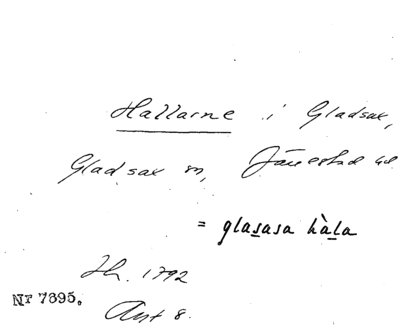 Hallarne i Gladsax,
Gladsax sn, Järrestad hd
= glasasa hàla
Jh. 1792
Nr 7895.
Akt 8.